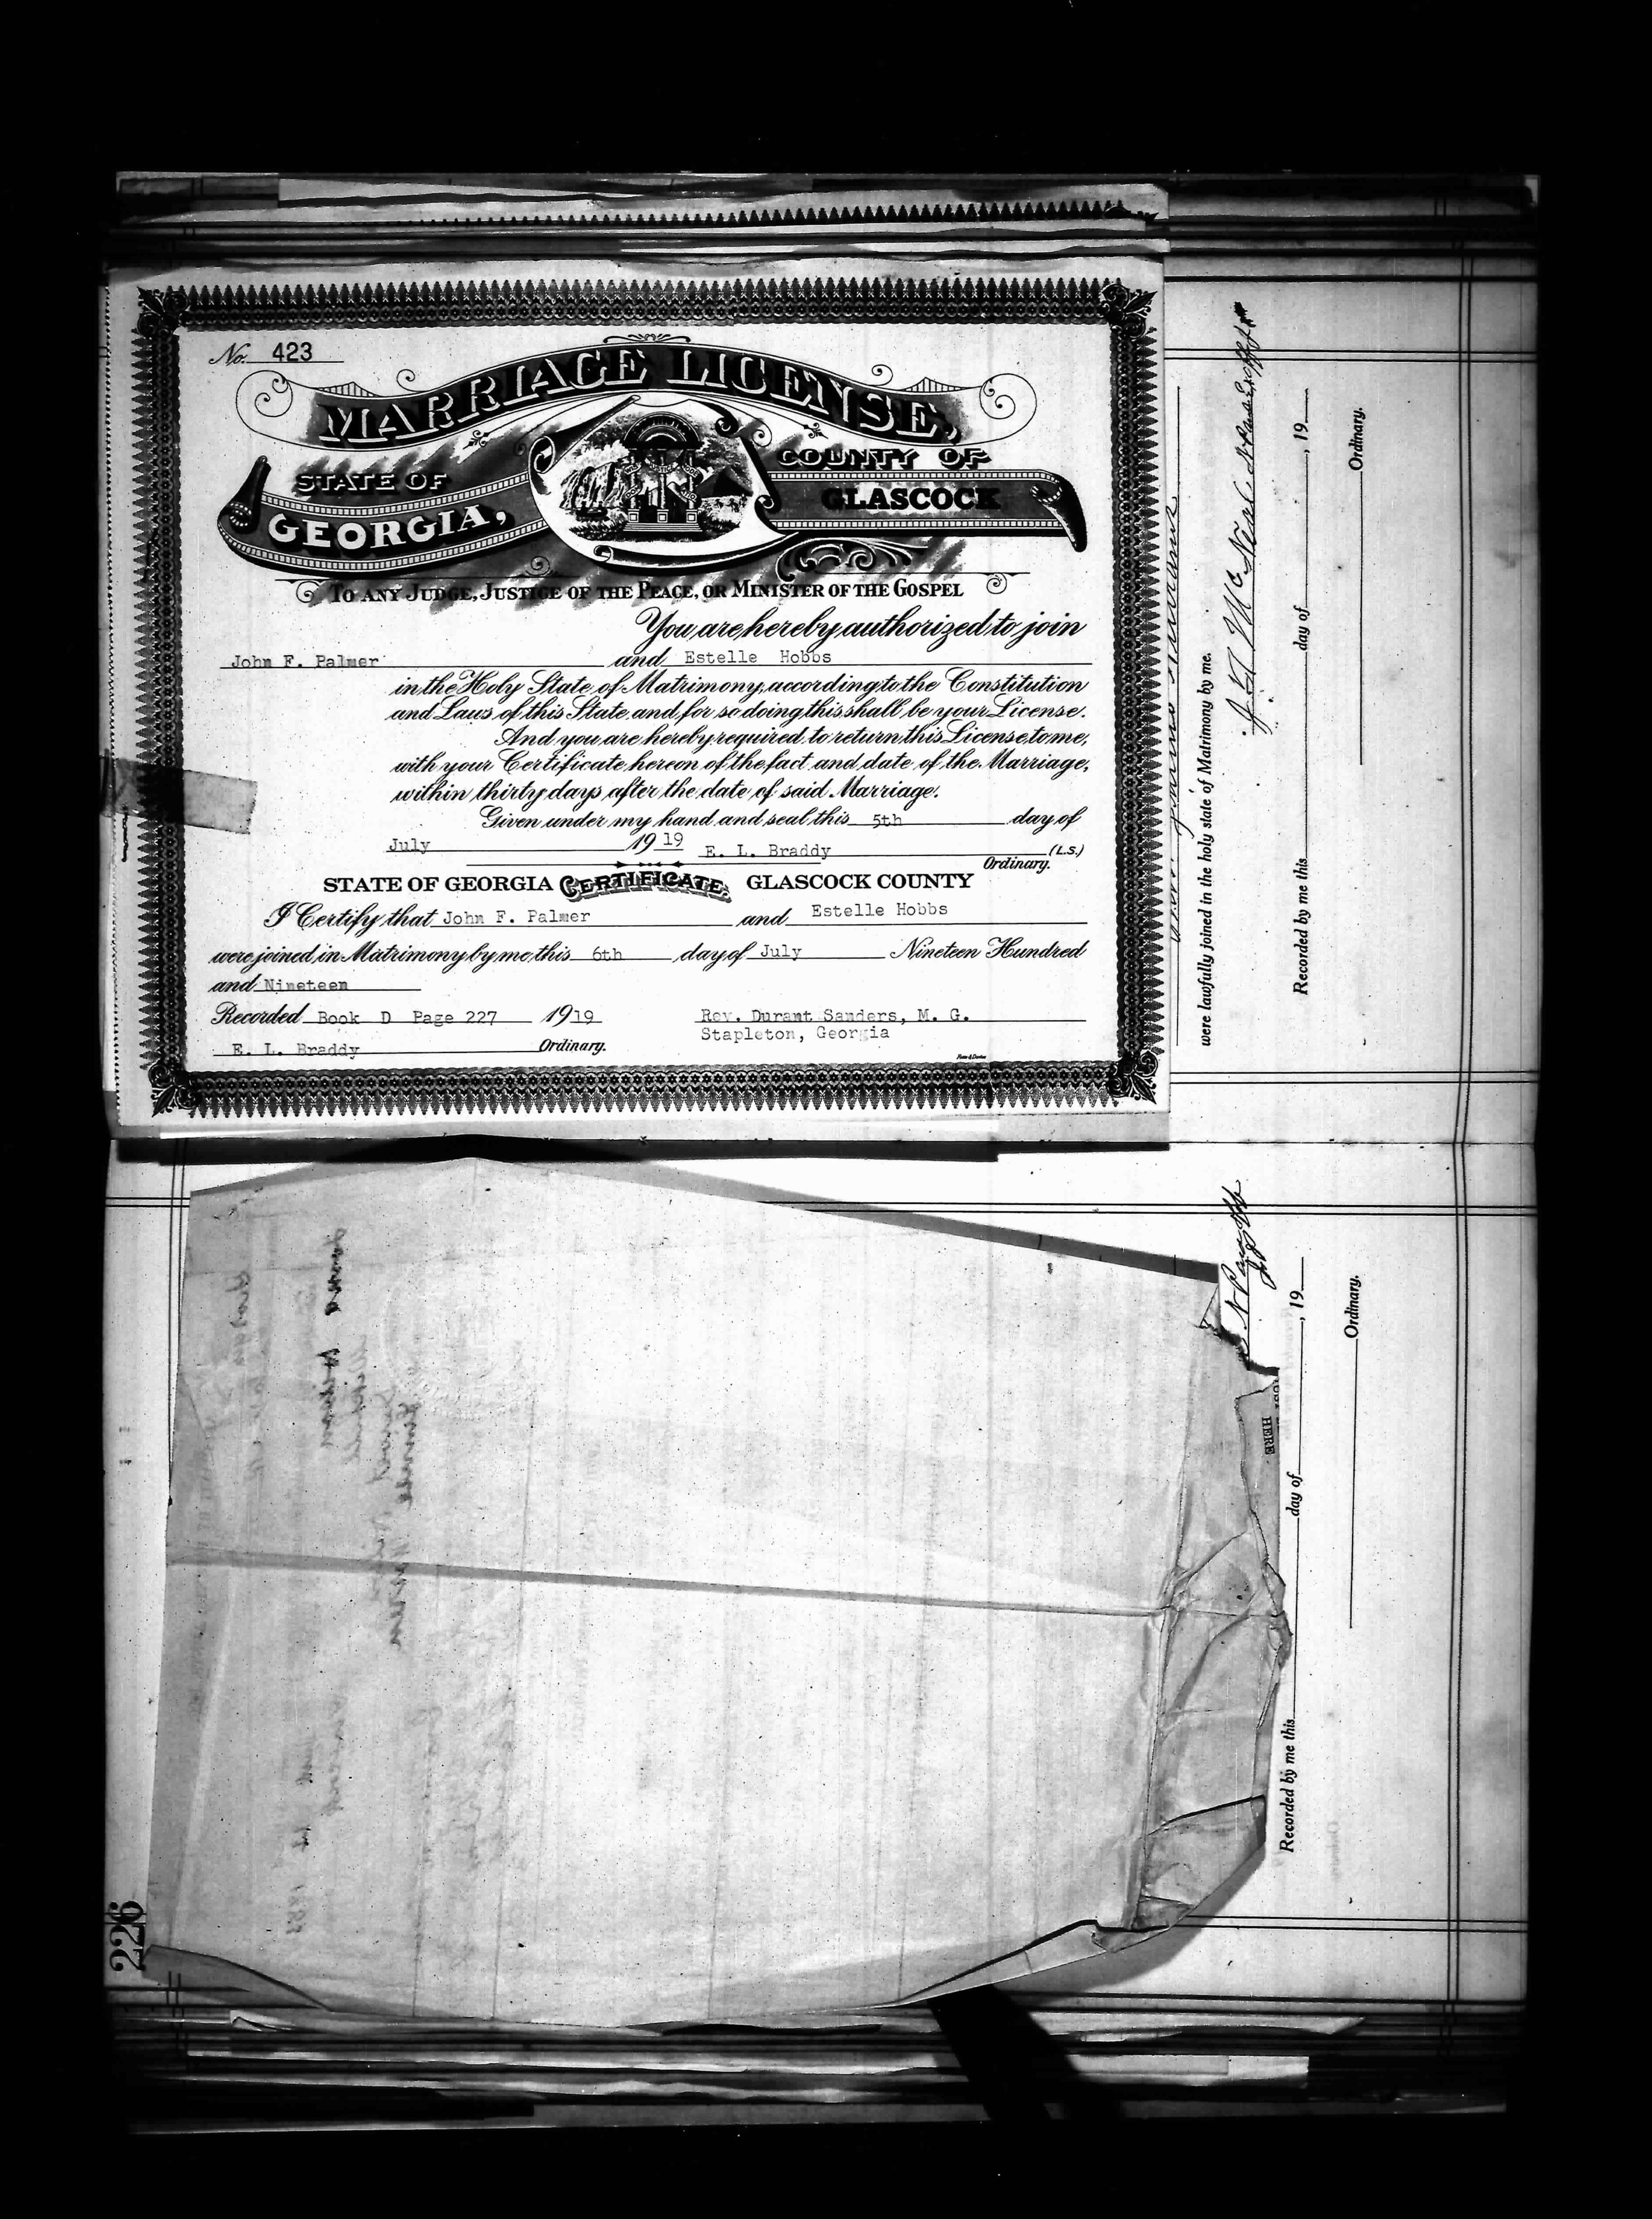 No. 423
MARRIAGE LICENSE,
STATE OF GEORGIA,
COUNTY OF GLASCOCK
TO ANY JUDGE, JUSTICE OF THE PEACE, OR MINISTER OF THE GOSPEL
You are hereby authorized to join
John F. Palmer and Estelle Hobbs
in the Holy State of Matrimony, according to the Constitution
and Laws of this State, and for so doing this shall be your License.
And you are hereby required to return this License to me,
with your Certificate hereon of the fact and date of the Marriage,
within thirty days after the date of said Marriage.
Given under my hand and seal this 5th day of
July 19 19 E. L. Braddy (L.S.)
Ordinary.
STATE OF GEORGIA CERTIFICATE. GLASCOCK COUNTY
I Certify that John F. Palmer and Estelle Hobbs
were joined in Matrimony by me, this 6th day of July Nineteen Hundred
and Nineteen
Recorded Book D Page 227 1919 Rev. Durant Sanders, M. G.
Stapleton, Georgia
E. L. Braddy Ordinary.
were lawfully joined in the holy state of Matrimony by me.
Recorded by me this day of , 19
Ordinary.
HERE
Recorded by me this day of , 19
Ordinary.
226